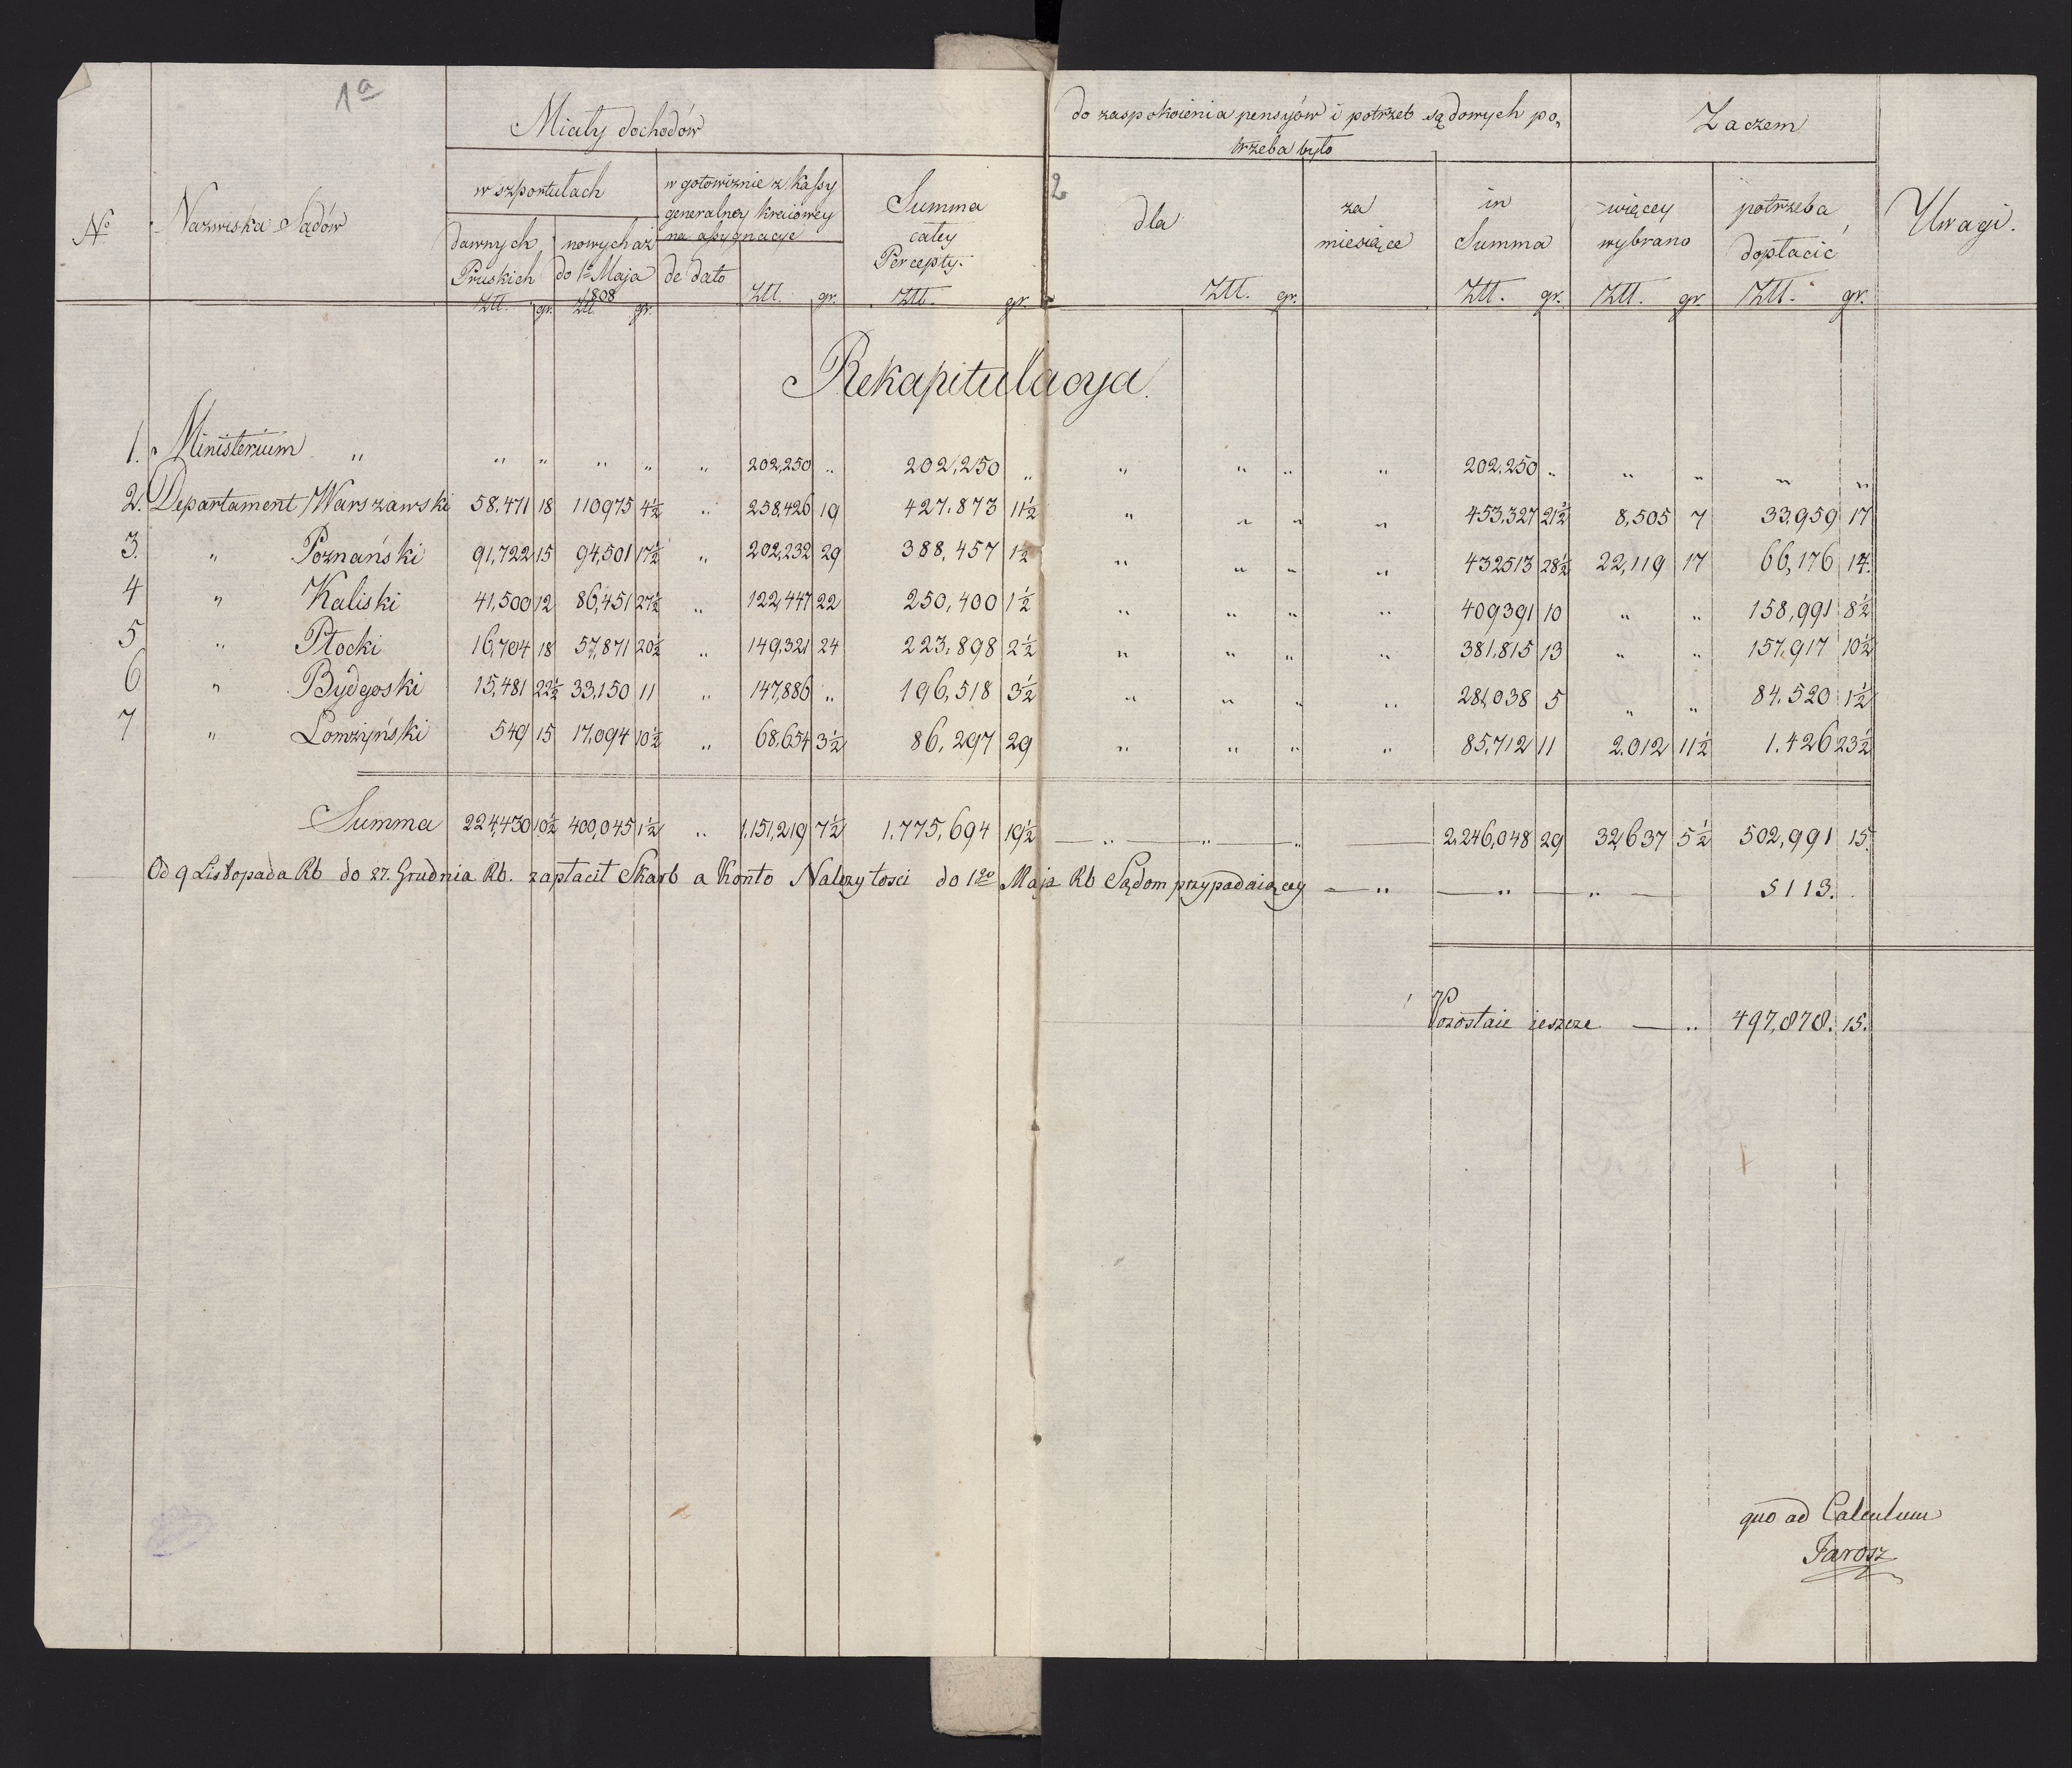 1a
Miały dochodów
do zaspokoienia pensyów i potrzeb sądowych po,
trzeba było
Zaczem
2
No
Nazwiska Sądów
w szportulach
w gotowiznie z Kassy
generalney kraiowey
na assygnacye
Summa
całey
Percepty.
dla
za
miesiące
in
Summa
więcey
wybrano
potrzeba
dopłacić
Uwagi.
dawnych
Pruskich
nowych aż
do 1o Maja
1808
de dato
Złl. gr. Złl. gr. Złl. gr. Złl. gr. Złl. gr. Złl. gr. Złl. gr. Złl. gr.
Rekapitulacya.
1. Ministerium " " " " " " 202,250 " 202,250 " " " " " 202,250 " " " " "
2. Departament Warszawski 58,471 18 110975 4½ " 258,426 19 427,873 11½ " " " " 453,327 21½ 8,505 7 33,959 17
3. " Poznański 91,722 15 94,501 17½ " 202,232 29 388,457 1½ " " " " 432513 28½ 22,119 17 66,176 14.
4 " Kaliski 41,500 12 86,451 27½ " 122,447 22 250,400 1½ " " " " 409391 10 " " 158,991 8½
5 " Płocki 16,704 18 57,871 20½ " 149,321 24 223,898 2½ " " " " 381,815 13 " " 157,917 10½
6 " Bydgoski 15,481 22½ 33,150 11 " 147,886 " 196,518 3½ " " " " 281,038 5 " " 84,520 1½
7 " Łomżyński 549 15 17,094 10½ " 68,654 3½ 86,297 29 " " " " 85,712 11 2,012 11½ 1,426 23½
Summa 224,430 10½ 400,045 1½ " 1,151,219 7½ 1.775,694 19½ — " — " — " — 2,246,048 29 32,637 5½ 502,991 15.
Od 9 Listopada Rb do 27. Grudnia Rb. zapłacił Skarb a Konto Należytosci do 1go Maja Rb Sądom przypadaiącey — " — " — " — 5113.
Pozostaie ieszcze — " 497,878. 15.
quo ad Calculum
Jarosz